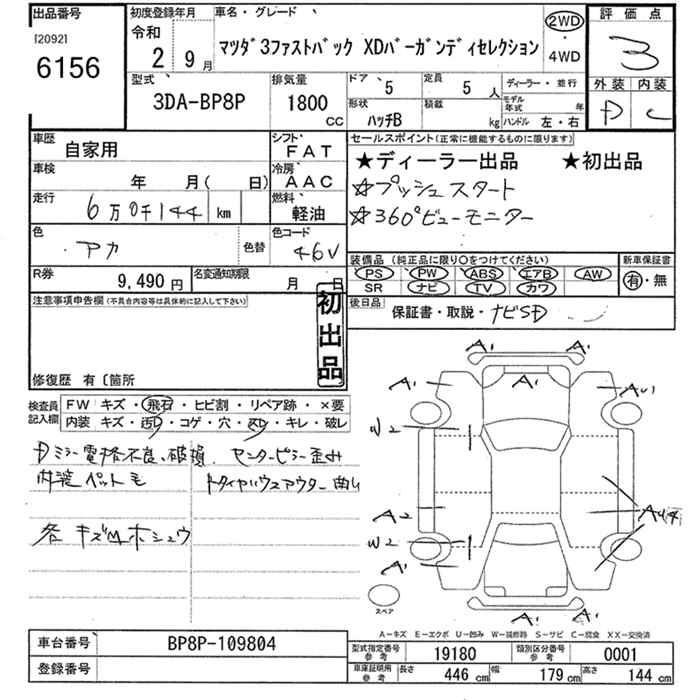 出品番号
[2092]
6156
初度登録年月
令和
2 9月
車名・グレード
マツダ3ファストバック XDバーガンディセレクション
2WD
・
4WD
評価点
3
外装 内装
D C
型式
3DA-BP8P
排気量
1800
CC
ドア 5
定員 5 人
形状 ハッチB
積載 kg
ディーラー・並行
モデル年式 年
ハンドル 左・右
車歴 自家用
シフト FAT
車検 年 月( 日)
冷房 AAC
走行 6万0千144 km
燃料 軽油
色 アカ
色替
色コード 46V
R券 9,490円
名変通知期限 月 日
セールスポイント(正常に機能するものに限ります)
★ディーラー出品 ★初出品
☆プッシュスタート
☆360°ビューモニター
装備品(純正品に限り○をつけてください)
PS PW ABS エアB AW
SR ナビ TV カワ
新車保証書
有・無
後日品
保証書・取説・ナビSD
注意事項申告欄(不具合内容等は具体的に記入して下さい)
初出品
修復歴 有〔箇所
検査員記入欄
FW キズ・飛石・ヒビ割・リペア跡・×要
内装 キズ・汚レ・コゲ・穴・スレ・キレ・破レ
Dミラー電格不良、破損、センターピラー歪み
内装ペット毛 トタイヤハウスアウター曲り
各キズUホシュウ
A1
A1
A1
A1
AU1
W2
A2
W2
A1
AU4
A1
スペア
A-キズ E-エクボ U-凹み W-補修跡 S-サビ C-腐食 XX-交換済
車台番号 BP8P-109804
登録番号
型式指定番号 参考 19180
類別区分番号 参考 0001
車庫証明用 参考 長さ 446 cm 幅 179 cm 高さ 144 cm